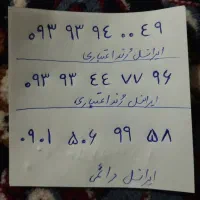 ۰۹۳ ۹۳ ۹۴ ۰۰ ۴۹
ایرانسل رند اعتباری
۰۹۳ ۹۳ ۴۴ ۷۷ ۹۶
ایرانسل رند اعتباری
۰۹۰۱ ۵۰۶ ۹۹ ۵۸
ایرانسل دائمی